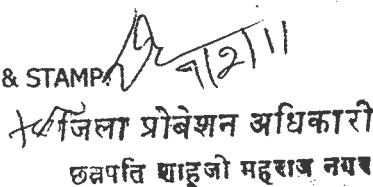 & STAMP
जिला प्रोबेशन अधिकारी
छत्रपति शाहूजी महराज नगर